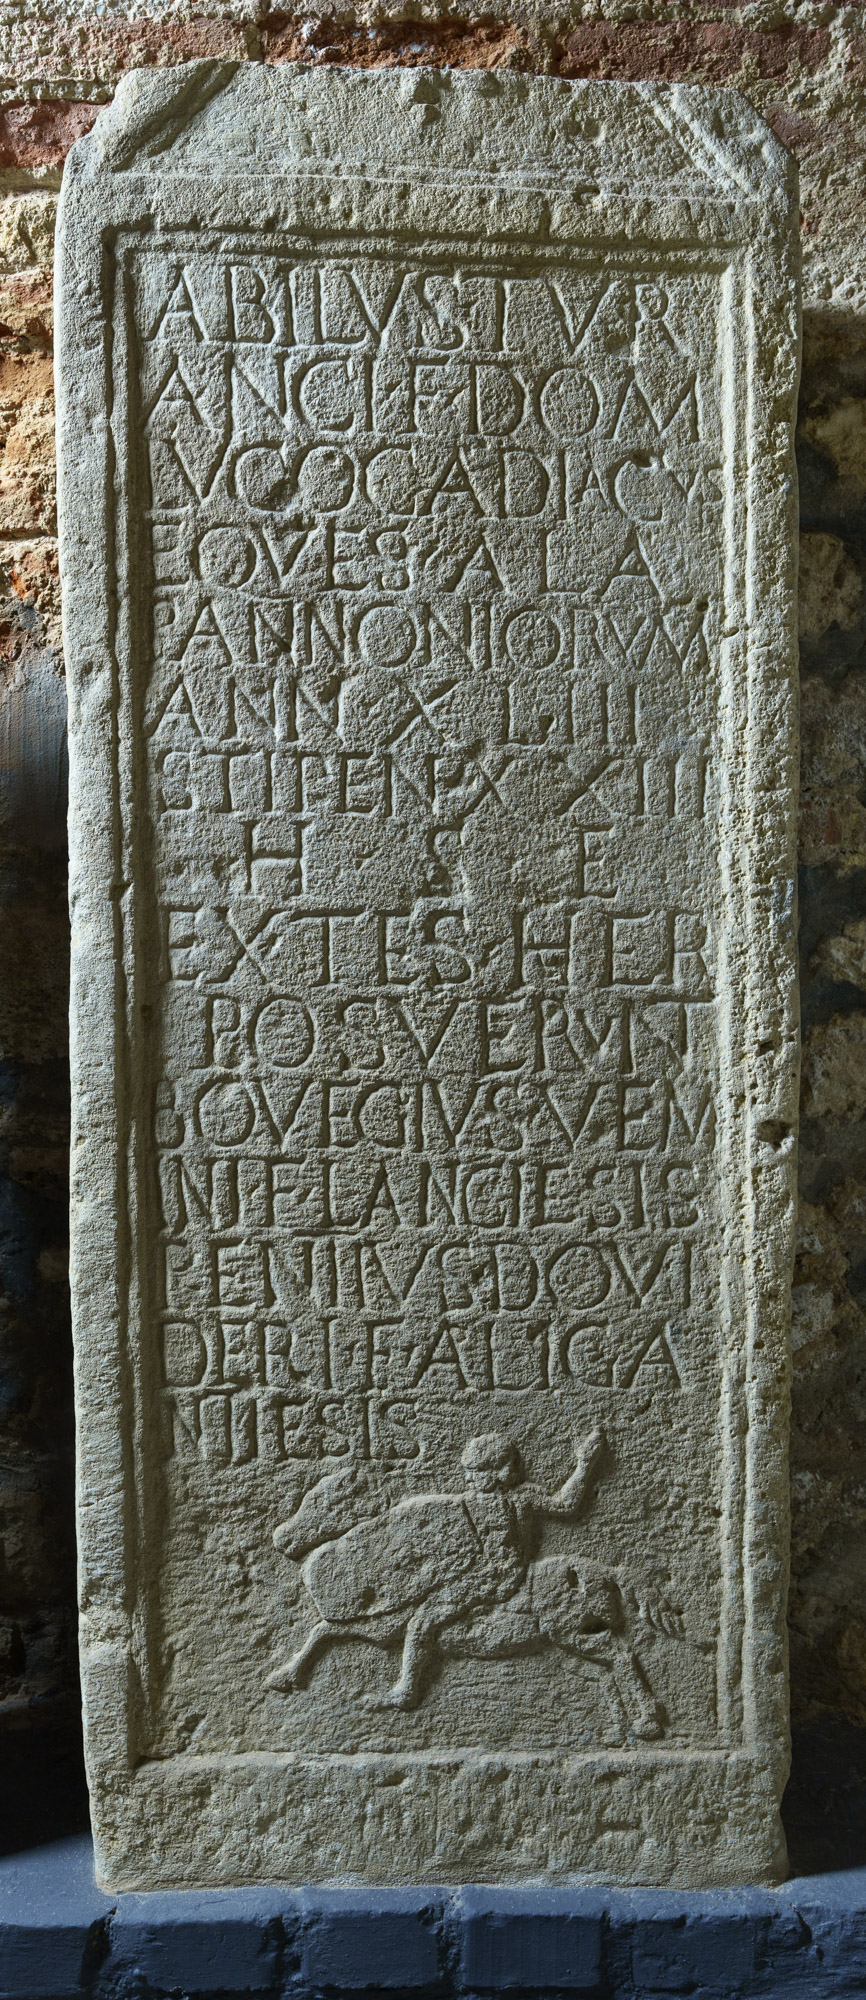 ABILVS TVR
ANCI F DOM
LVCOCADIACVS
EQVES ALA
PANNONIORVM
ANN XLIIII
STIPEN XXIII
H S E
EX TES HER
POSVERVNT
BOVEGIVS VEM
INI F LANCIESIS
PENTIVS DOVI
DERI F ALIGA
NTIESIS